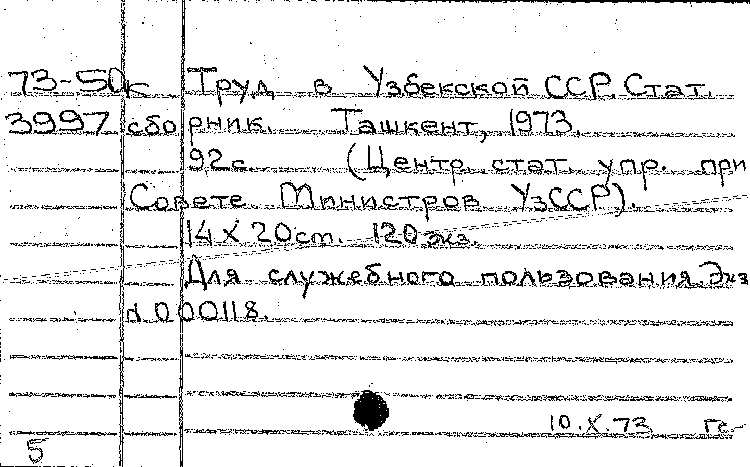 73-50к Труд в Узбекской ССР. Стат.
3997 сборник. Ташкент, 1973.
92с. (Центр. стат. упр. при
Совете Министров УзССР).
14 X 20 см. 120 экз.
Для служебного пользования. Экз
N 000118.
10.X.73 гс-
5